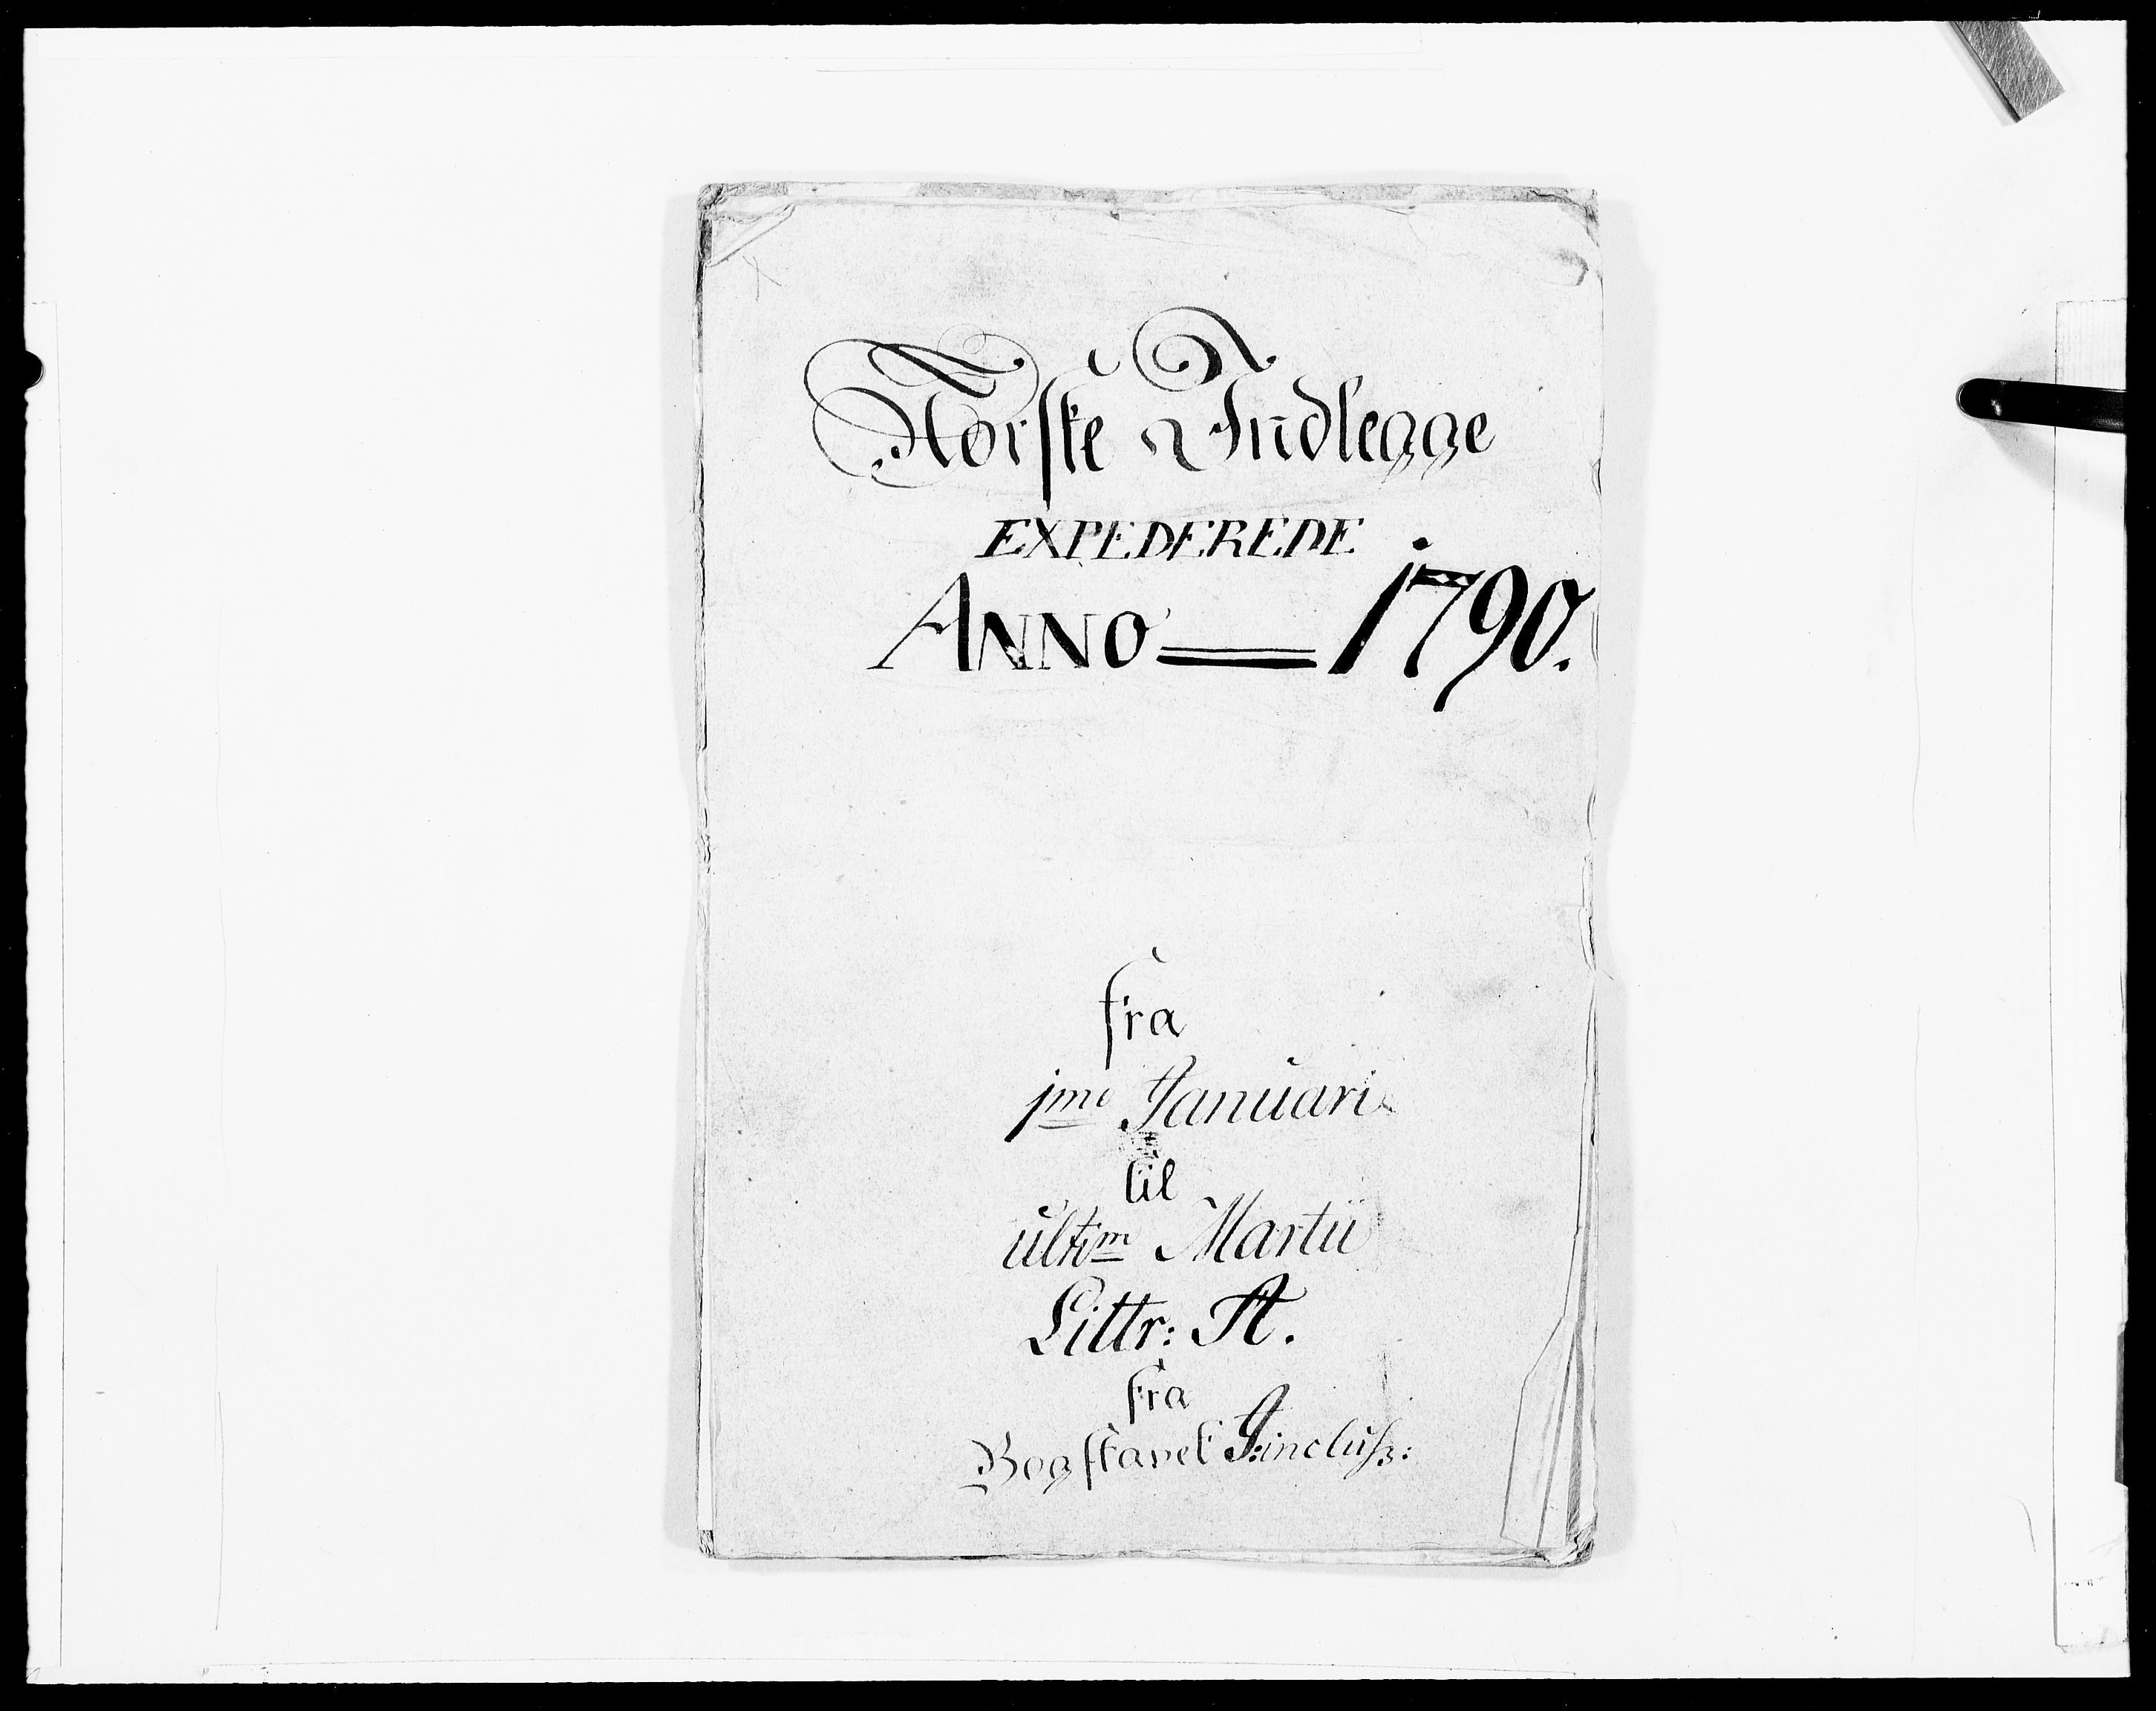 Norske Indlegge
EXPEDEREDE
ANNO 1790.
fra
jmo Januari
til
ultim Martii
Littr: A.
fra
Bogstavet J: inclus: